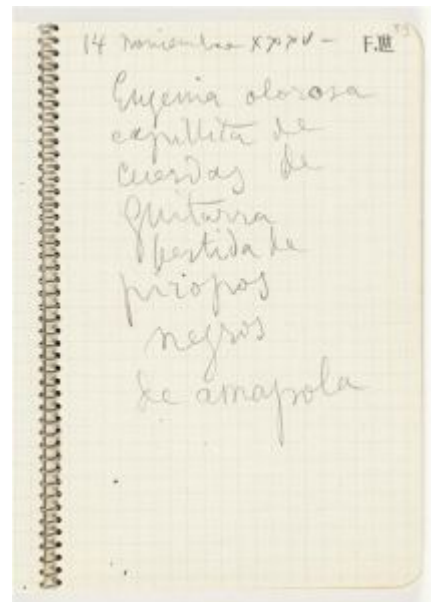 14 noviembre XXXV – F.III 33
Eugenia olorosa
capillita de
cuerdas de
guitarra
vestida de
piropos
negros
de amapola